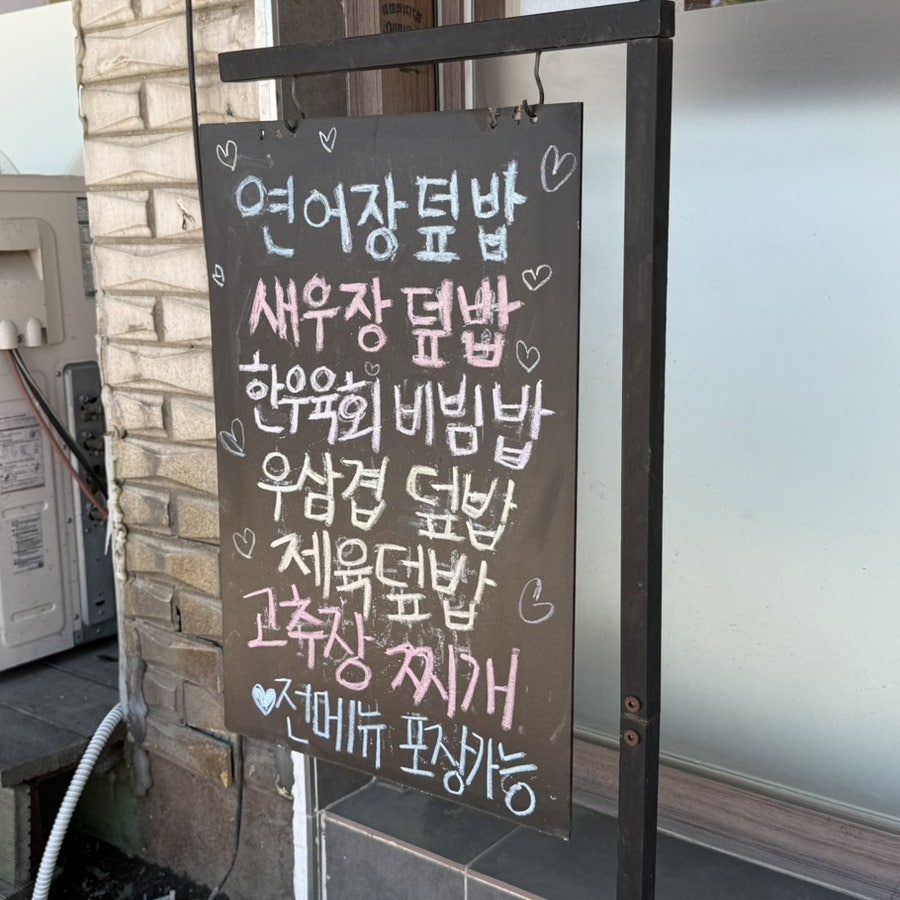 연어장덮밥
새우장 덮밥
한우육회 비빔밥
우삼겹 덮밥
제육덮밥
고추장 찌개
전메뉴 포장가능